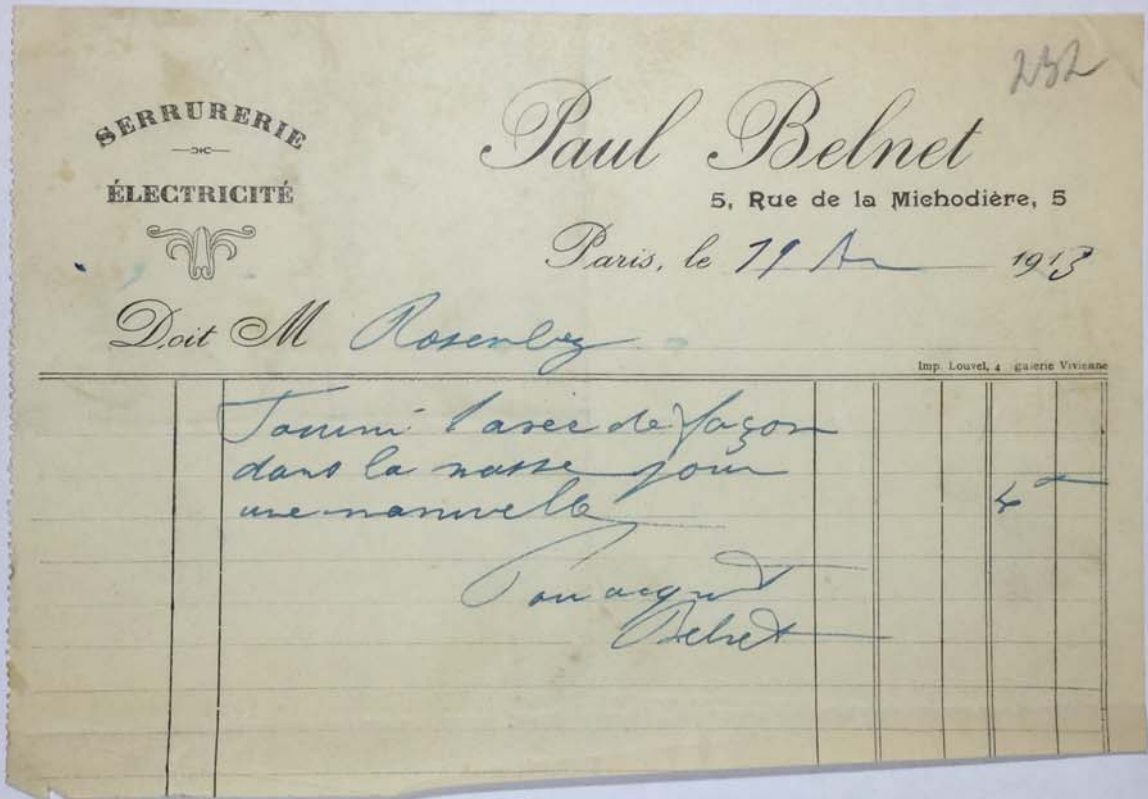 232
SERRURERIE
ÉLECTRICITÉ
Paul Belnet
5, Rue de la Michodière, 5
Paris, le 19 1913
Doit M Rosenberg
Imp. Louvel, 4 galerie Vivienne
de façon
dans la masse pour
une manivelle
Pour acquit
Belnet